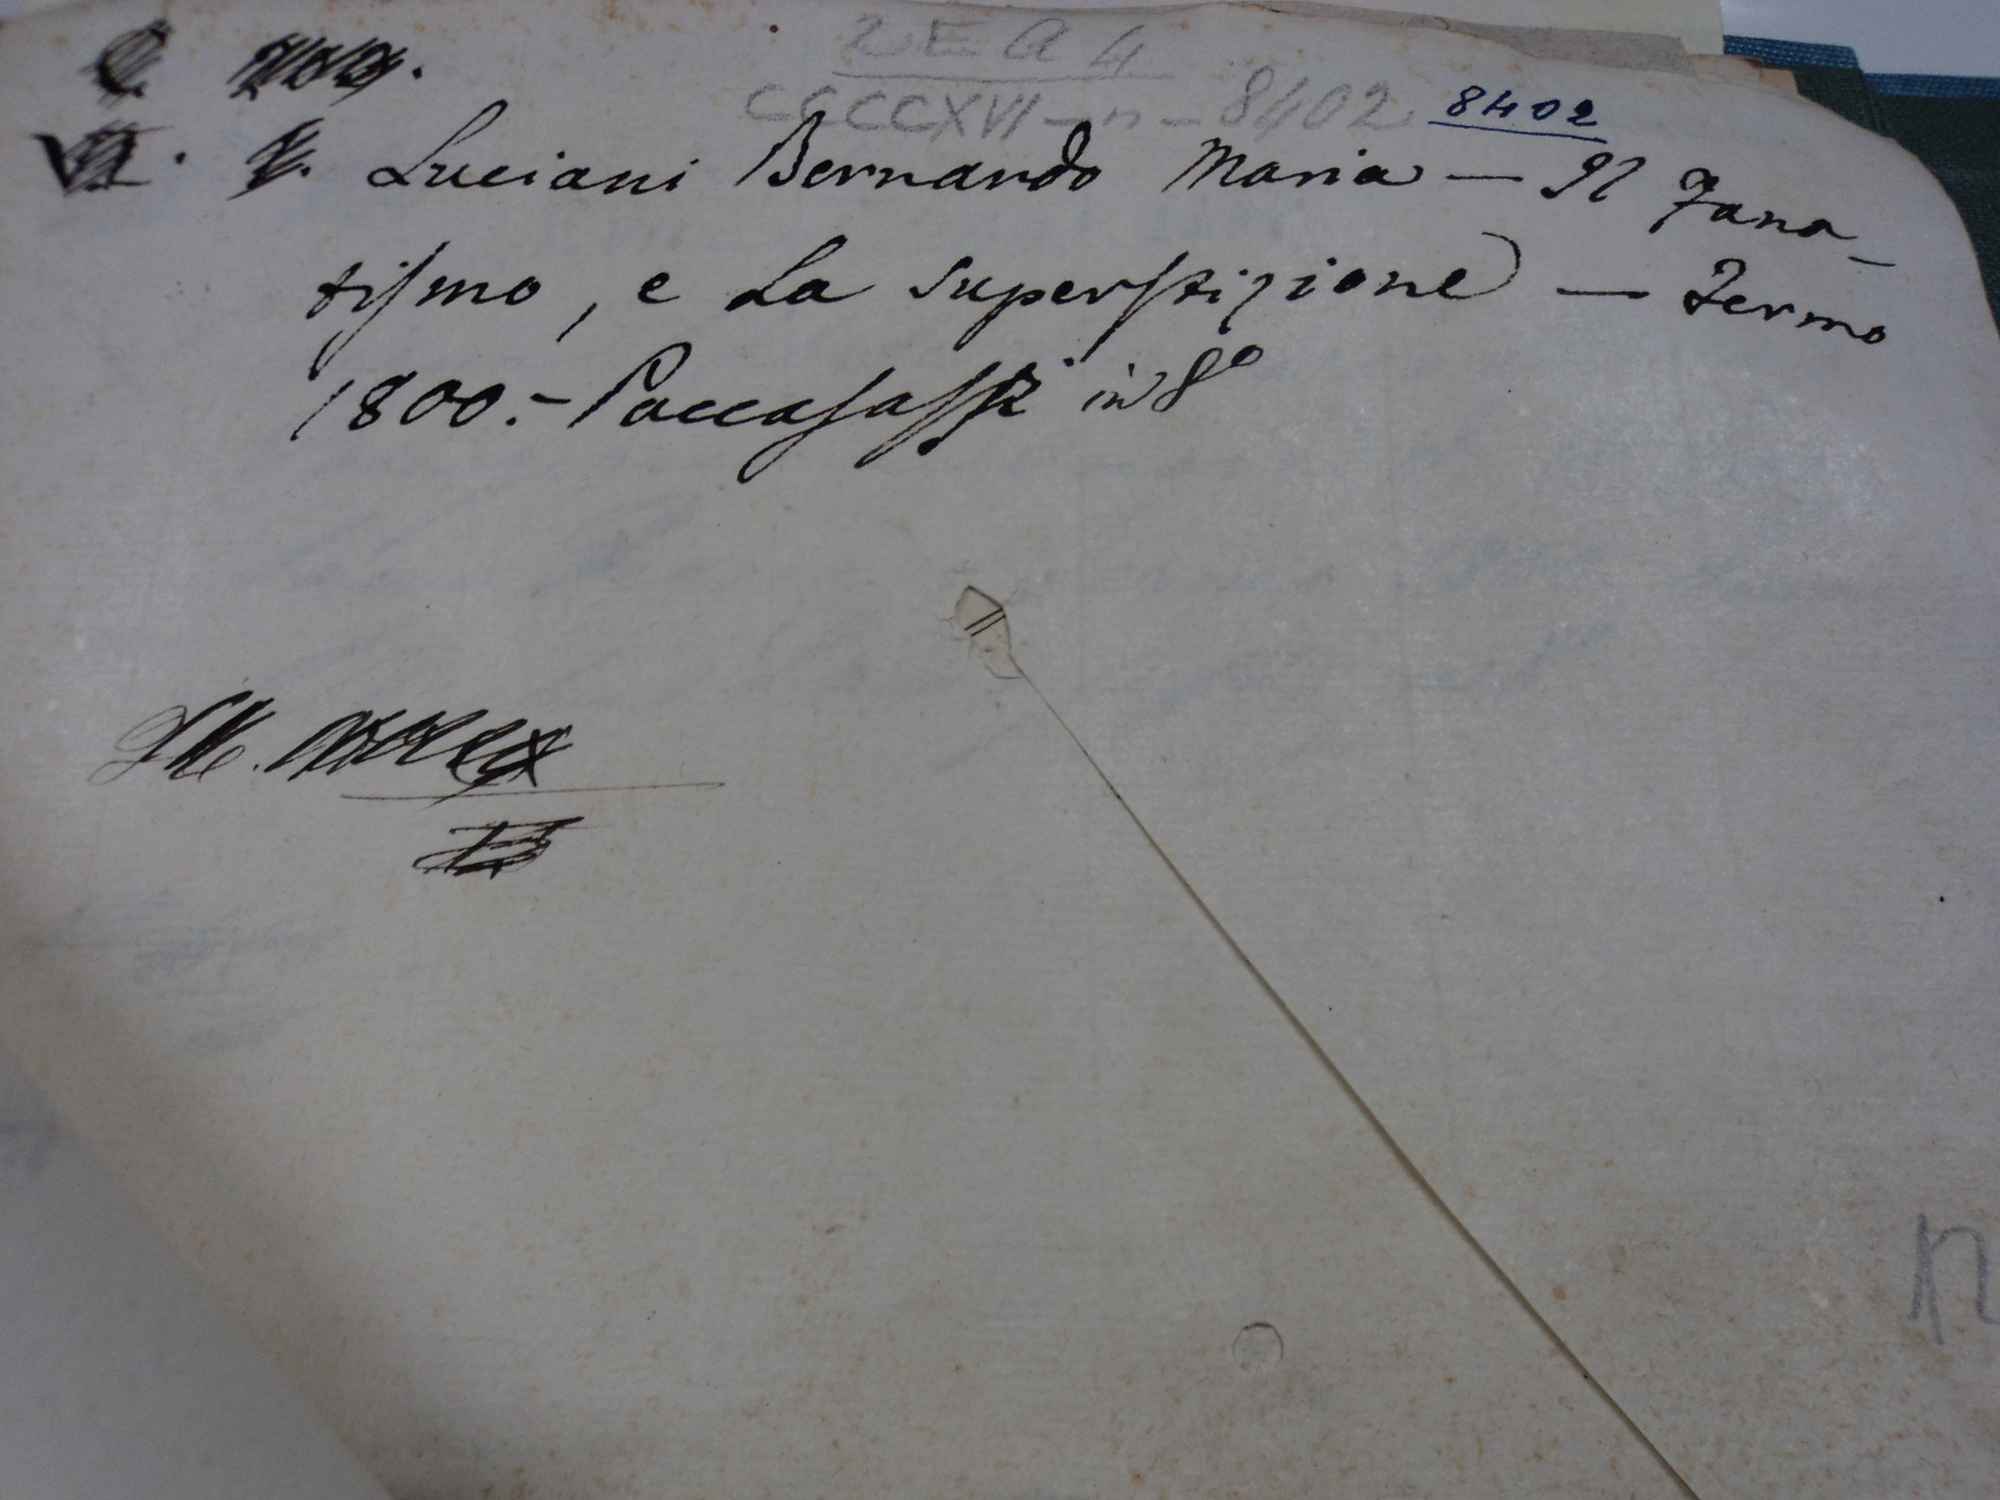 2 E A 4
CCCCXVI - n - 8402 8402
Luciani Bernardo Maria — Il Fana-
tismo, e La superstizione — Fermo
1800. - Paccasassi in 8º
n